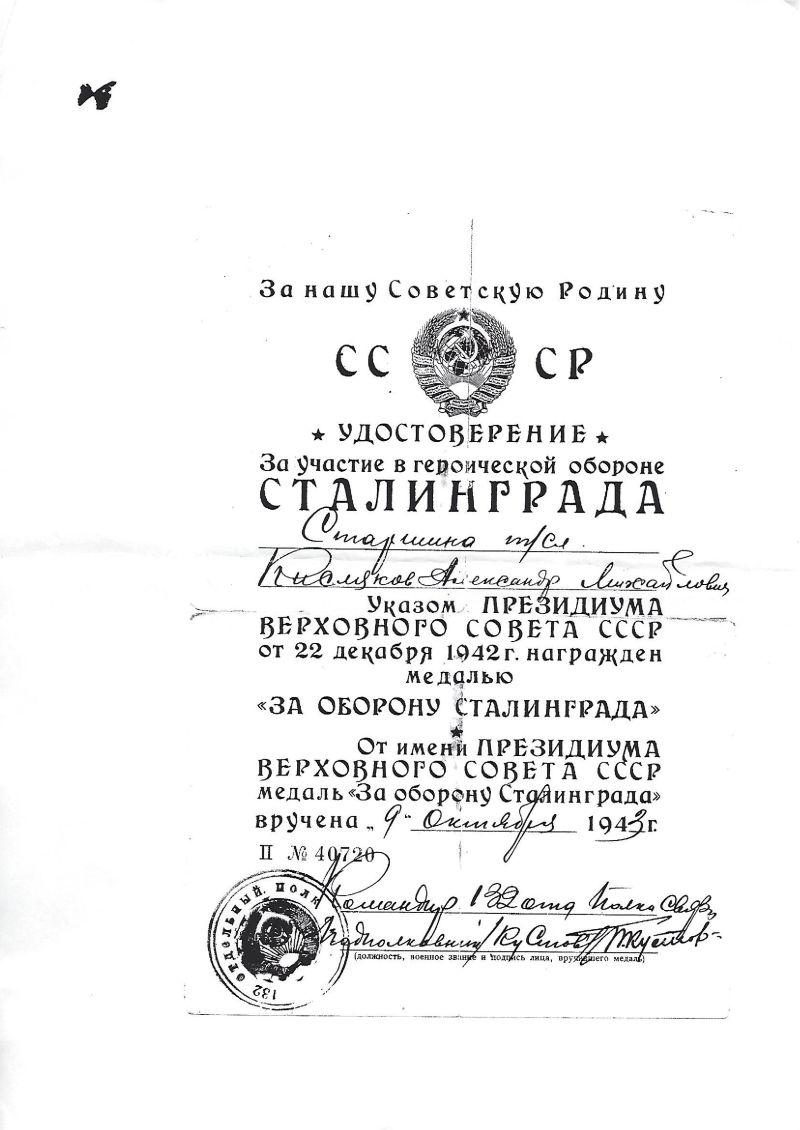 За нашу Советскую Родину
СССР
★ УДОСТОВЕРЕНИЕ ★
За участие в героической обороне
СТАЛИНГРАДА
Старшина т/сл.
Кисляков Александр Михайлович
Указом ПРЕЗИДИУМА
ВЕРХОВНОГО СОВЕТА СССР
от 22 декабря 1942 г. награжден
медалью
«ЗА ОБОРОНУ СТАЛИНГРАДА»
★
От имени ПРЕЗИДИУМА
ВЕРХОВНОГО СОВЕТА СССР
медаль «За оборону Сталинграда»
вручена „9" Октября 1943 г.
II № 40720
Командир 132 отд Полка Связи
Подполковник
(должность, военное звание и подпись лица, вручившего медаль)
132 ОТДЕЛЬНЫЙ ПОЛК